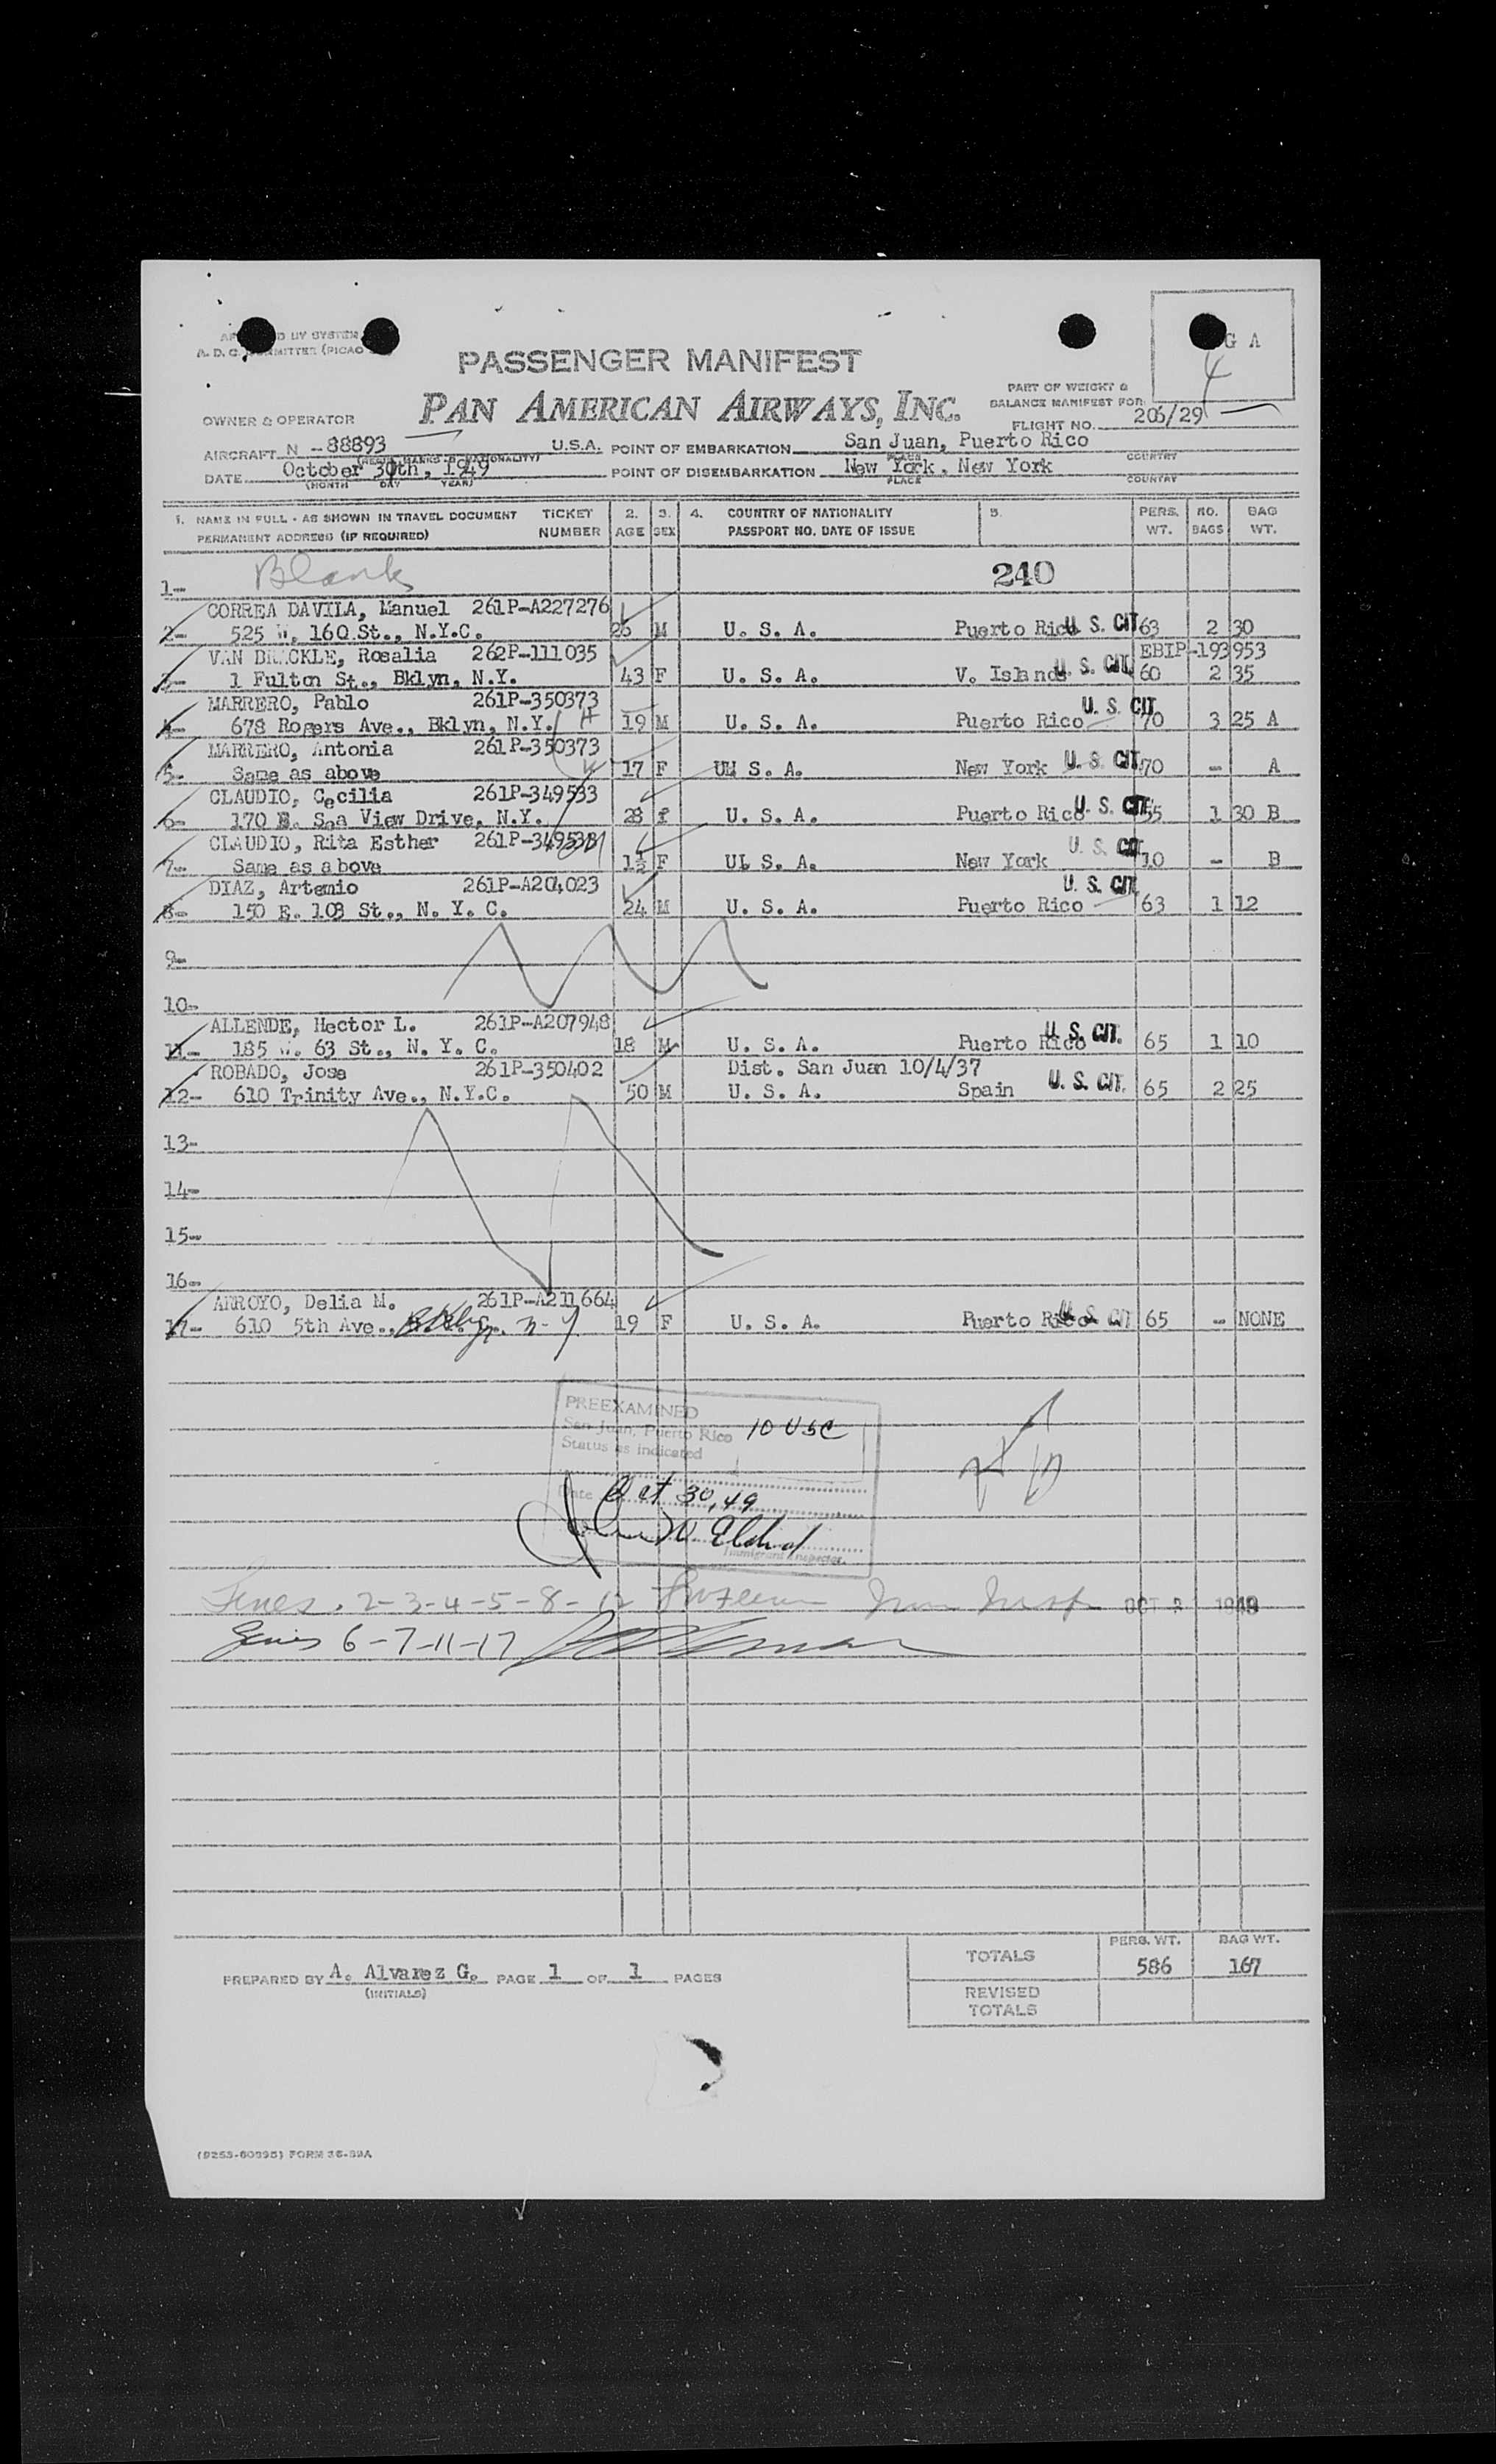 G A
4
PASSENGER MANIFEST
PAN AMERICAN AIRWAYS, INC.
PART OF WEIGHT &
BALANCE MANIFEST FOR
FLIGHT NO. 206/29
OWNER & OPERATOR
AIRCRAFT N -88893 U.S.A. POINT OF EMBARKATION San Juan, Puerto Rico
PLACE COUNTRY
DATE October 30th, 1949 POINT OF DISEMBARKATION New York, New York
(MONTH DAY YEAR) PLACE COUNTRY
1. NAME IN FULL - AS SHOWN IN TRAVEL DOCUMENT TICKET 2. 3. 4. COUNTRY OF NATIONALITY 5. PERS. NO. BAG
PERMANENT ADDRESS (IF REQUIRED) NUMBER AGE SEX PASSPORT NO. DATE OF ISSUE WT. BAGS WT.
1- Blank 240
CORREA DAVILA, Manuel 261P-A227276
2- 525 W. 160 St., N.Y.C. 26 M U. S. A. Puerto Rico U. S. CIT. 63 2 30
VAN BRACKLE, Rosalia 262P-111035 EBIP-193953
3- 1 Fulton St., Bklyn, N.Y. 43 F U. S. A. V. Islands U. S. CIT. 60 2 35
MARRERO, Pablo 261P-350373 U. S. CIT.
4- 678 Rogers Ave., Bklyn, N.Y. H 19 M U. S. A. Puerto Rico 70 3 25 A
MARRERO, Antonia 261P-350373
5- Same as above W 17 F U. S. A. New York U. S. CIT. 70 - A
CLAUDIO, Cecilia 261P-349533
6- 170 E. Sea View Drive, N.Y. 28 f U. S. A. Puerto Rico U. S. CIT. 55 1 30 B
CLAUDIO, Rita Esther 261P-349533 U. S. CIT.
7- Same as above 1½ F U. S. A. New York 10 - B
DIAZ, Artemio 261P-A204023 U. S. CIT.
8- 150 E. 103 St., N. Y. C. 24 M U. S. A. Puerto Rico 63 1 12
9-
10-
ALLENDE, Hector L. 261P-A207948
11- 185 W. 63 St., N. Y. C. 18 M U. S. A. Puerto Rico U. S. CIT. 65 1 10
ROBADO, Jose 261P-350402 Dist. San Juan 10/4/37
12- 610 Trinity Ave., N.Y.C. 50 M U. S. A. Spain U. S. CIT. 65 2 25
13-
14-
15-
16-
ARROYO, Delia M. 261P-A211664
17- 610 5th Ave., 19 F U. S. A. Puerto Rico U. S. CIT 65 - NONE
PREEXAMINED
San Juan, Puerto Rico 10 USC
Status as indicated
Date Oct 30, 49
John W. Eldred
Immigrant Inspector
Lines. 2-3-4-5-8-12 Imm Insp OCT 1949
Lines 6-7-11-17
TOTALS PERS. WT. BAG WT.
586 167
PREPARED BY A. Alvarez G. PAGE 1 OF 1 PAGES
(INITIALS)
REVISED
TOTALS
(9253-60395) FORM 36-39A